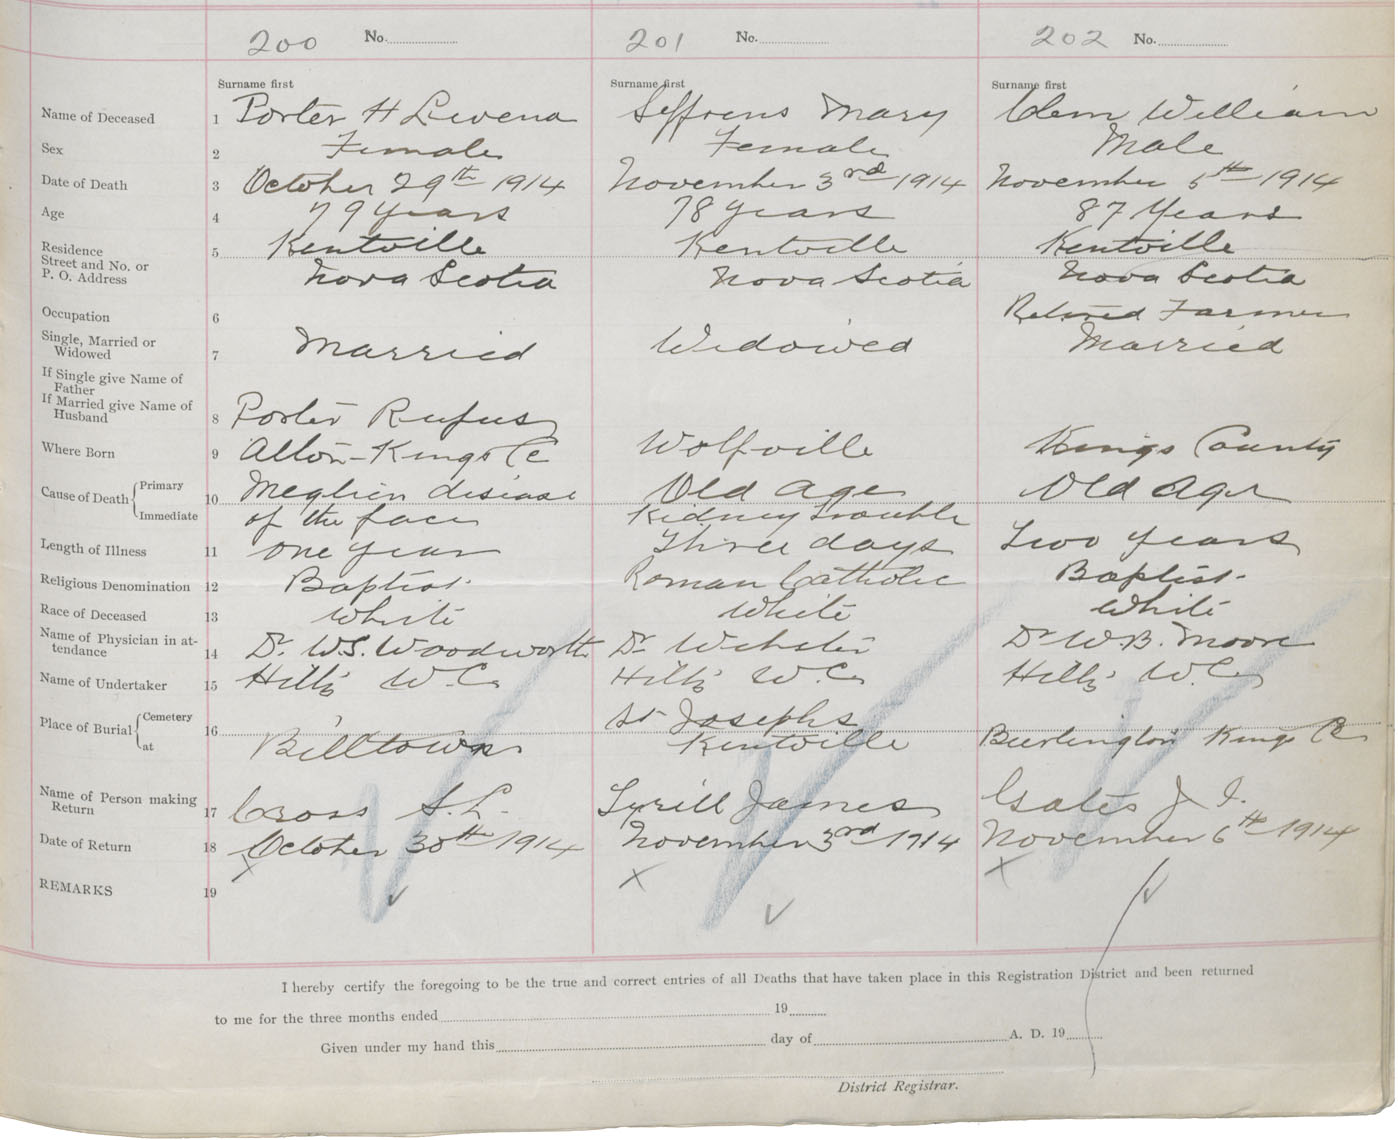 200 No. 201 No. 202 No.
Surname first Surname first Surname first
Name of Deceased 1 Porter H Levena Seffrens Mary Clem William
Sex 2 Female Female Male
Date of Death 3 October 29th 1914 November 3rd 1914 November 5th 1914
Age 4 79 years 78 years 87 Years
Residence
Street and No. or
P. O. Address
5 Kentville Kentville Kentville
Nova Scotia Nova Scotia Nova Scotia
Occupation 6 Retired Farmer
Single, Married or
Widowed 7 Married Widowed Married
If Single give Name of
Father
If Married give Name of
Husband 8 Porter Rufus
Where Born 9 Alton - Kings Co Wolfville Kings County
Cause of Death { Primary 10 disease Old Age Old Age
Immediate of the face Kidney Trouble
Length of Illness 11 one year Three days Two years
Religious Denomination 12 Baptist. Roman Catholic Baptist.
Race of Deceased 13 White White White
Name of Physician in at-
tendance 14 Dr. W.S. Woodworth Dr Webster Dr W.B. Moore
Name of Undertaker 15 Hills W.C. Hills W.C. Hills W.C.
Place of Burial { Cemetery 16 St Josephs
at Billtown Kentville Burlington Kings Co
Name of Person making
Return 17 Cross S.L. James Gates J I.
Date of Return 18 October 30th 1914 November 3rd 1914 November 6th 1914
REMARKS 19
I hereby certify the foregoing to be the true and correct entries of all Deaths that have taken place in this Registration District and been returned
to me for the three months ended 19
Given under my hand this day of A. D. 19
District Registrar.